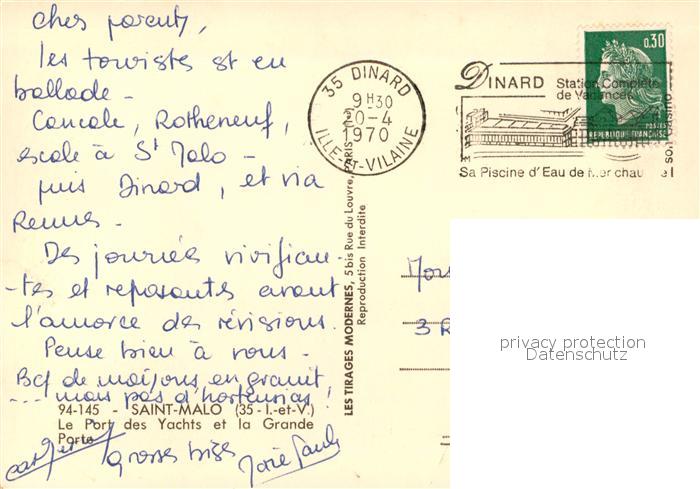 chers parents,
les touristes st en
ballade -
Cancale, Rotheneuf,
escale à St Malo -
puis Dinard, et via
Rennes -
Des journées vivifian-
-tes et reposantes avant
l'amorce des révisions.
Pense bien à vous -
Bcp de maisons en granit,
... mais pas d'hortensias !
94-145 - SAINT-MALO (35-I.-et-V.)
Le Port des Yachts et la Grande
Porte
Grosses bises
LES TIRAGES MODERNES, 5 bis Rue du Louvre, PARIS
Reproduction Interdite
35 DINARD
9H30
20-4
1970
ILLE-ET-VILAINE
DINARD Station Complète
de Vacances
Sa Piscine d'Eau de Mer chau
son Casino
0,30
POSTES
REPUBLIQUE FRANÇAISE
3 R
privacy protection
Datenschutz